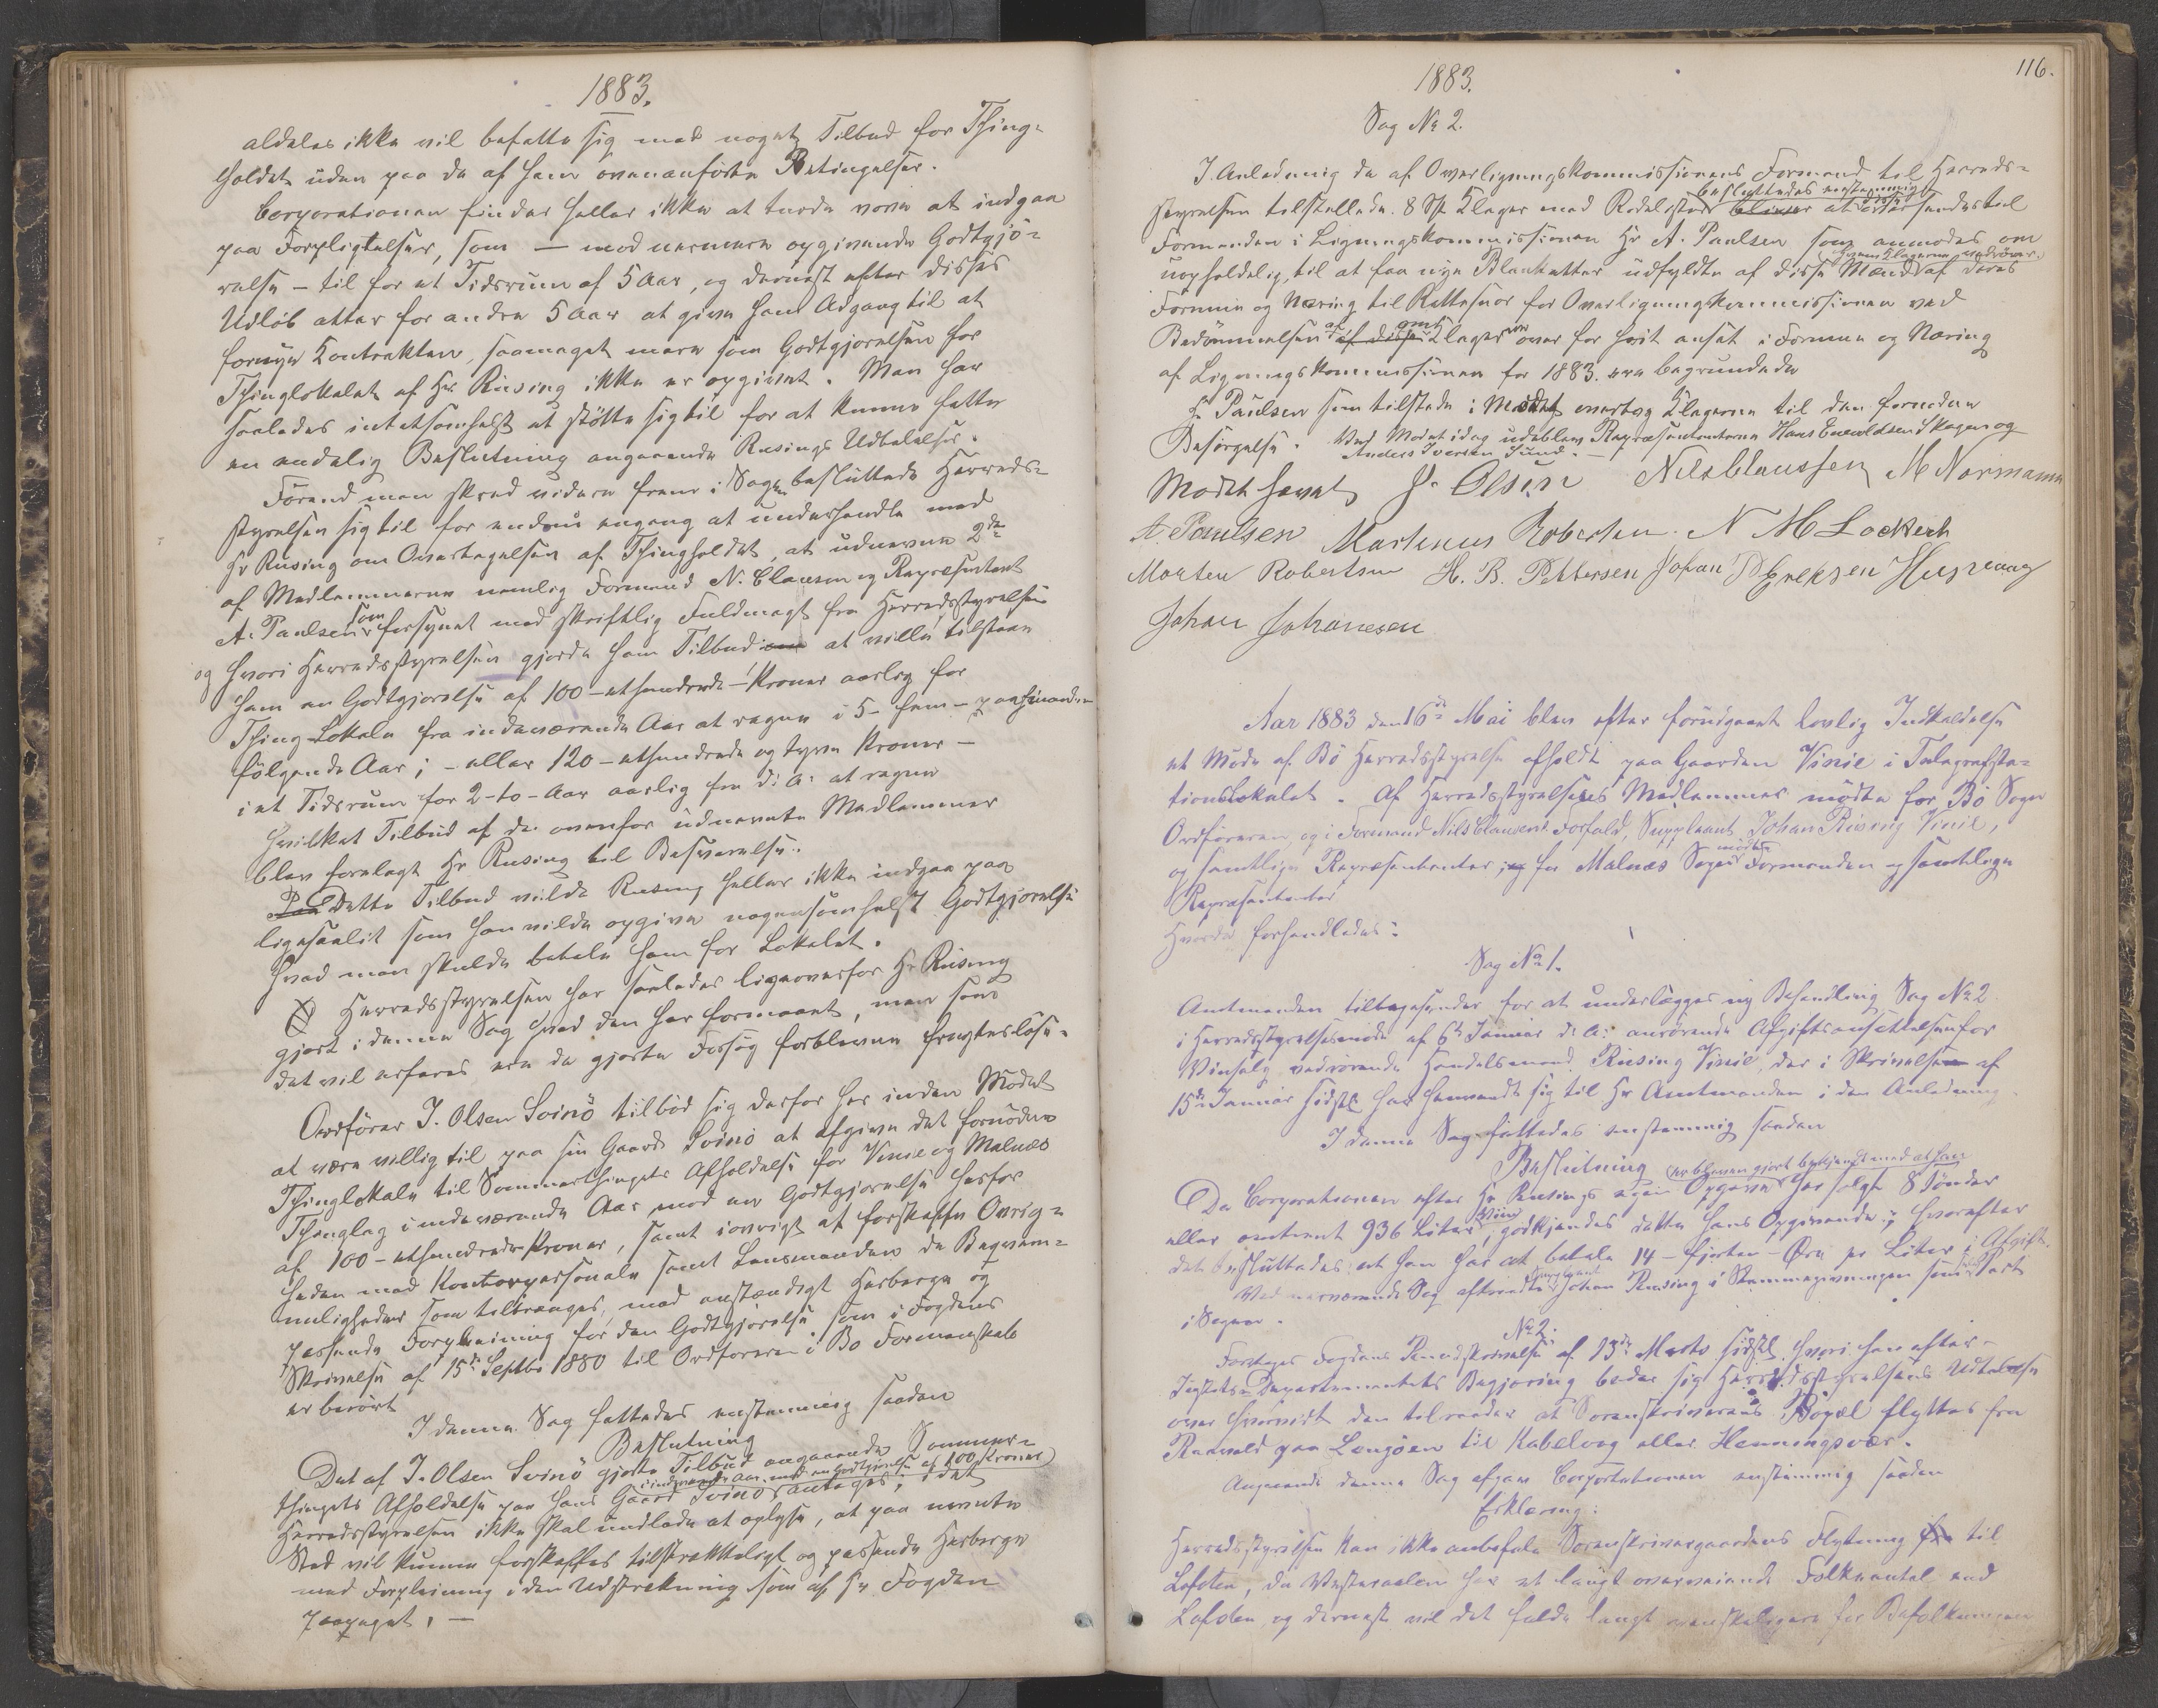 1883.
aldeles ikke vil befatte sig med noget Tilbud for Thing-
holdet uden paa de af ham ovenanførte Betingelser.
Corporationen finder heller ikke at turde være at indgaa
paa Forpligtelser, som — mod nærmere opgivende Godtgjø-
relse – til for et Tidsrum af 5 Aar, og dernæst efter disses
Udløb atter for andre 5 Aar at give ham Adgang til at
fornye Kontrakten, saameget mere som Godtgjørelsen for
Thinglokalet af Hr Riising ikke er opgivet. Man har
saaledes intetsomhelst at støtte sig til for at kunne fatte
en endelig Beslutning angaaende Riisings Udtalelser.
Førend man skred videre frem i Sagen besluttede Herreds-
styrelsen sig til for endnu engang at underhandle med
Hr Riising om Overtagelsen af Thingholdet, at udnevne 2de
af Medlemmerne nemlig Formand N. Clausen og Repræsentant
A. Paulsen som forsynet med skriftlig Fuldmagt fra Herredsstyrelsen
og hvori Herredsstyrelsen gjorde ham Tilbud om at ville tilstaae
ham en Godtgjørelse af 100 – ethundrede – Kroner aarlig for
Thing-Lokale fra indeværende Aar at regne i 5 – fem – paa hinanden
følgende Aar; – eller 120 – ethundrede og tyve Kroner –
i et Tidsrum for 2 – to – Aar aarlig fra d: A: at regne
hvilket Tilbud af de ovenfor udnevnte Medlemmer
blev forelagt Hr Riising til Besvarelse.
Paa Dette Tilbud vilde Riising heller ikke indgaa paa
ligesaalidt som han vilde opgive nogensomhelst Godtgjørelse
hvad man skulde betale ham for Lokalet.
Herredsstyrelsen har saaledes ligeoverfor Hr Riising
gjort i denne Sag hvad den har formaaet, men som
det vil erfares ere de gjorte Forsøg forblevne frugtesløse.
Ordfører J. Olsen Svinø tilbød sig derfor her inden Mødet
at være villig til paa sin Gaard Svinø at afgive det fornødne
Thinglokale til Sommerthingets Afholdelse for Vinie og Malnes
Thinglag i indeværende Aar mod en Godtgjørelse herfor
af 100 – ethundrede Kroner, samt iøvrigt at forskaffe Øvrig-
heden med Kontorpersonale samt Lensmanden de Beqvem-
meligheder som tiltrænges, med anstændigt Herberge og
passende Forpleining for den Godtgjørelse som i Fogdens
Skrivelse af 15de Septbr 1880 til Ordføreren i Bø Formandskab
er berørt
I denne Sag fattedes enstemmig saadan
Beslutning
Det af J. Olsen Svinø gjorte Tilbud angaaende Sommer-
i indeværende Aar mod en Godtgjørelse af 100 Kroner
thingets Afholdelse paa hans Gaard Svinø antages, idet
Herredsstyrelsen ikke skal undlade at oplyse, at paa nevnte
Sted vil kunne forskaffes tilstrækkeligt og passende Herberge
med Forpleining i den Udstrekning som af Hr Fogden
paapeget. —
116.
1883.
Sag No 2.
I Anledning de af Overligningskommissionens Formand til Herreds-
besluttedes enstemmig
styrelsen tilstillede 8 St Klager med bliver at sendes til
Formanden i Ligningskommissionen Hr A. Paulsen som anmodes om
uopholdelig, til at faa nye Blanketter udfyldte af disse Mænd af deres
Formue og Næring til Rettesnor for Overligningskommissionen ved
Bedømmelsen af disse om Klager over for høit ansat i Formue og Næring
af Ligningskommissionen for 1883. ere begrundede
Hr Paulsen som tilstede i Mødet overtog Klagerne til den fornødne
Besørgelse. Ved Mødet idag udeblev Repræsentanterne Hans Enevoldsen Skagen og
Anders Iversen Sund. —
Mødet hævet J. Olsen Nils Claussen M Normann
A Paulsen Martinus Robertsen. N M Lockert
Morten Robertsen H. B. Pettersen Johan Hugvaag
Johan Johanesen
Aar 1883 den 16de Mai blev efter forudgaaet lovlig Indkaldelse
et Møde af Bø Herredsstyrelse afholdt paa Gaarden Vinie i Telegrafsta-
tionslokalet. Af Herredsstyrelsens Medlemmer mødte for Bø Sogn
Ordføreren, og i Formand Nils Clausens Forfald, Suppleant Johan Riising Vinie,
og samtlige Repræsentanter; og for Malnes Sogn mødte Formanden og samtlige
Repræsentanter
Hvorda forhandledes:
Sag No 1.
Amtmanden tilbagesender for at underlægges ny Behandling Sag No 2
i Herredsstyrelsesmøde af 6te Januar d. A: anrørende Afgiftsansættelsen for
Viinsalg vedrørende Handelsmand Riising Vinie, der i Skrivelse af
15de Januar sidstl har henvendt sig til Hr Amtmanden i den Anledning.
I denne Sag fattedes enstemmig saadan
Beslutning
er bleven gjort bekjendt med at han
Da Corporationen efter Hr Riisings egen Opgave har solgt 8 Tønder
eller omtrent 936 Liter Viin, godkjendes dette hans Opgivende; hvorefter
det besluttedes at han har at betale 14 – fjorten – Øre pr Liter i Afgift.
Ved nærværende Sag aftraadte Suppleant Johan Riising i Stemmegivningen som Part
i Sagen.
No 2.
Foretoges Fogdens Paaskrivelse af 13de Marts sidstl. hvori han efter
Justits-Departementets Begjæring beder sig Herredsstyrelsens Udtalelse
over hvorvidt den tilraader at Sorenskriverens Bopæl flyttes fra
Ranvold paa Langøen til Kabelvog eller Henningsvær.
Angaaende denne Sag afgav Corporationen enstemmig saadan
Erklæring:
Herredsstyrelsen kan ikke anbefale Sorenskrivergaardens Flytning til
Lofoten, da Vesteraalen har et langt overveiende Folkeantal end
Lofoten, og dernæst vil det falde langt vanskeligere for Befolkningen